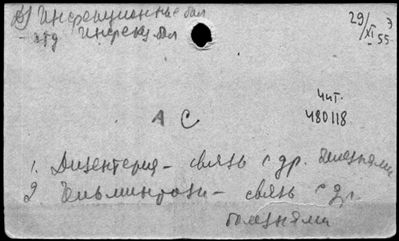 Инфекционные бол
- отд Инфекц. бол
29/XI 55
А С
Чит.
480118
1. Дизентерия - связь с др. болезнями
2 Гельминтозы - связь с др.
болезнями